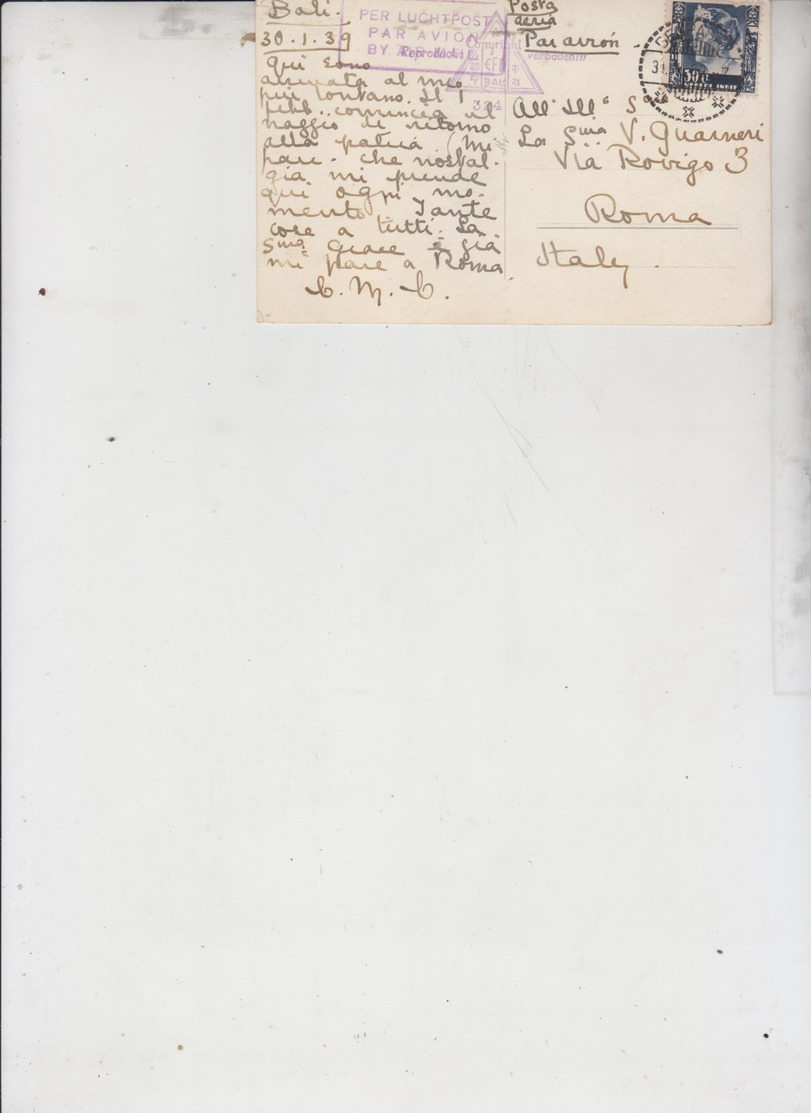 Bali.
30.1.39
Qui sono
arrivata al mio
più lontano. Il 1
febb. comincia il
viaggio di ritorno
alla patria. (Mi
pare che nostal-
gia mi prende
qui ogni mo-
mento. Tante
cose a tutti. La
Sma Grace è già
mi pare a Roma
C. M. C.
PER LUCHTPOST
PAR AVION
BY AIR MAIL
Reproductie
Copyright
verboden!!!
BALI
324
Posta
aerea
Par avion
All' Ill
La Sma V. Guarneri
Via Rovigo 3
Roma
Italy.
31